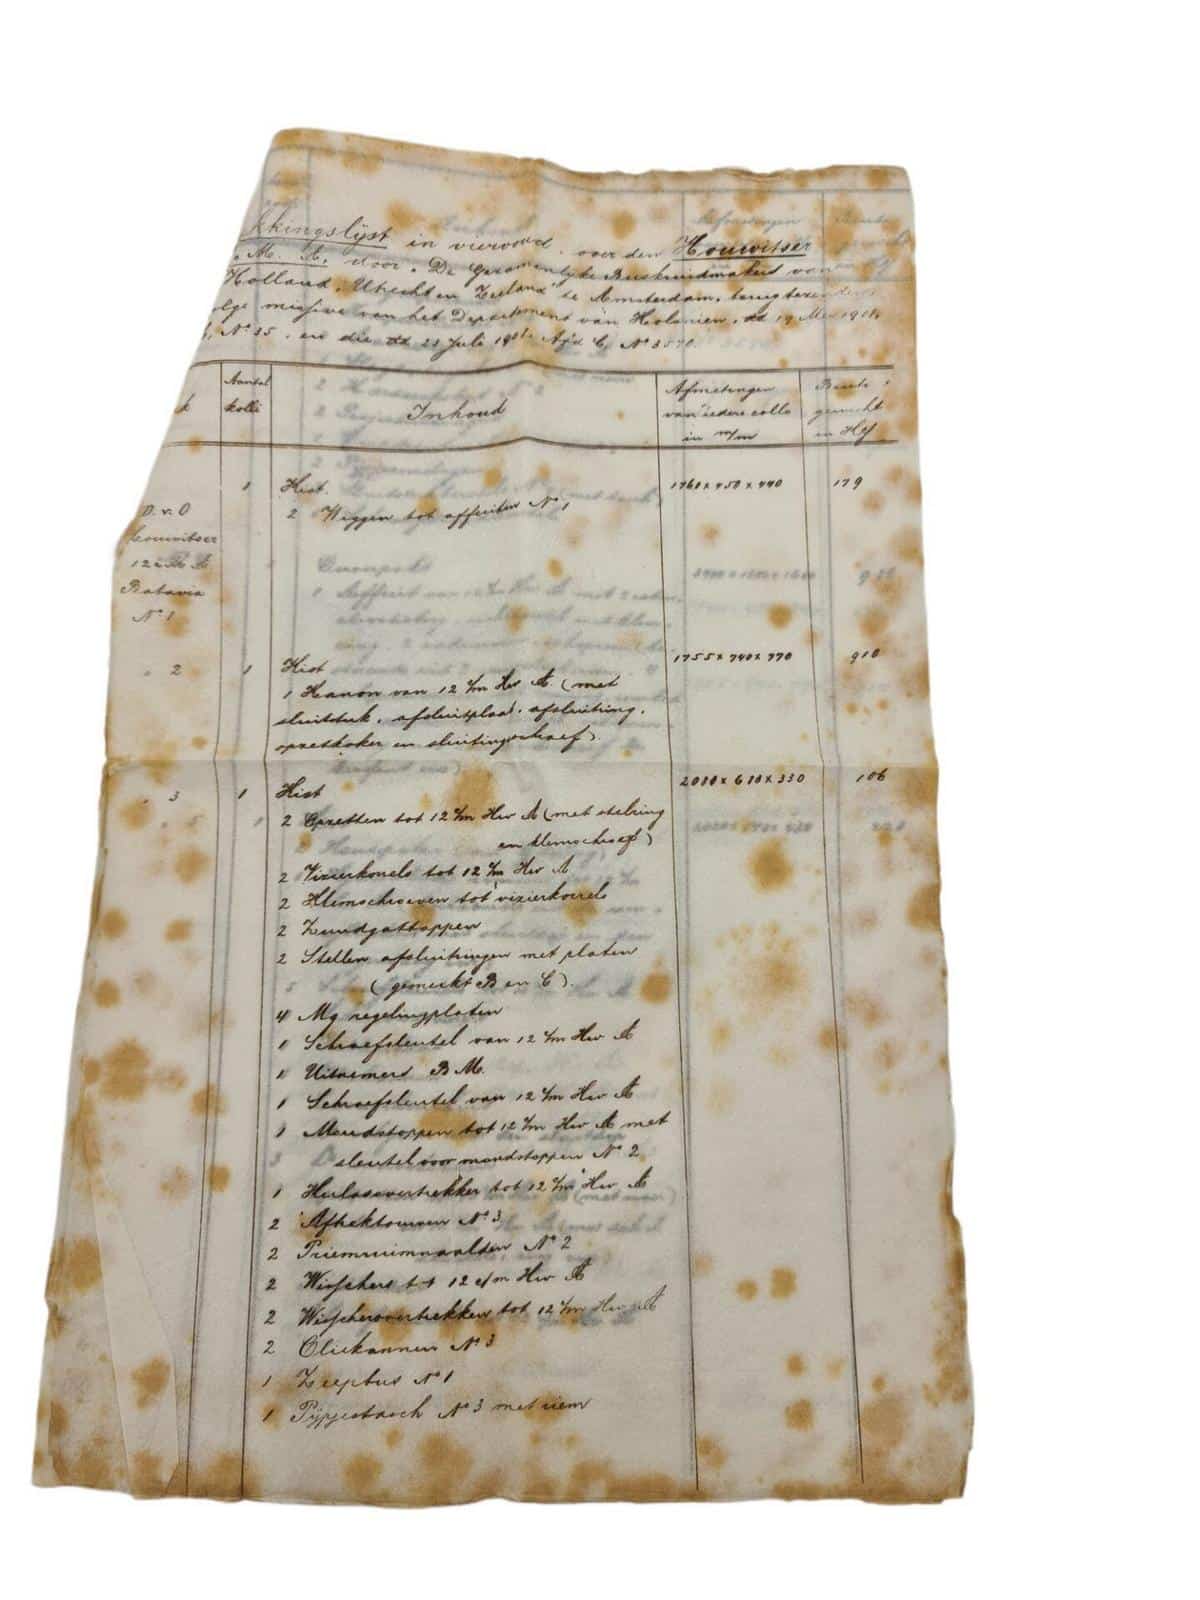 kkingslijst in viervoud over den Houwitser
M. A. door "De Gezamenlijke Buskruidmakers van
Holland, Utrecht en Zeeland" te Amsterdam, terug te zenden
missive van het Departement van Koloniën, dd 19 Mei
No 35, en die dd 23 Juli Afd C, No
Aantal kolli
Inhoud
Afmetingen van iedere collo in m/m
Bruto gewicht in Kg
D. v. O
Houwitser
12 c/m A
Batavia
No 1
1 Kist. 1760 x 450 x 440 179
2 Wiggen tot affuiten No 1
2 1 Kist 1755 x 740 x 770 910
1 Kanon van 12 c/m Hw A. (met
sluitstuk, afsluitplaat, afsluitring,
opzetkoker en sluitingschroef).
3 1 Kist 2010 x 610 x 330 106
2 Opzetten tot 12 c/m Hw A (met stelring
en klemschroef)
2 Vizierkorrels tot 12 c/m Hw A
2 Klemschroeven tot vizierkorrels
2 Zundgatstoppen
2 Stellen afsluitringen met platen
(gemerkt B en C).
4 Mg regelingplaten
1 Schroefsleutel van 12 c/m Hw A
1 Uitnemers B M.
1 Schroefsleutel van 12 c/m Hw A
1 Mondstoppen tot 12 c/m Hw A met
sleutel voor mondstoppen No 2
1 Kulasovertrekker tot 12 c/m Hw A
2 Aftrektouwen No 3
2 Priemruimnaalden No 2
2 Wisschers tot 12 c/m Hw A
2 Wisschersovertrekken tot 12 c/m Hw A
2 Oliekannen No 3
1 Zeepbus No 1
1 Pijpjestasch No 3 met riem